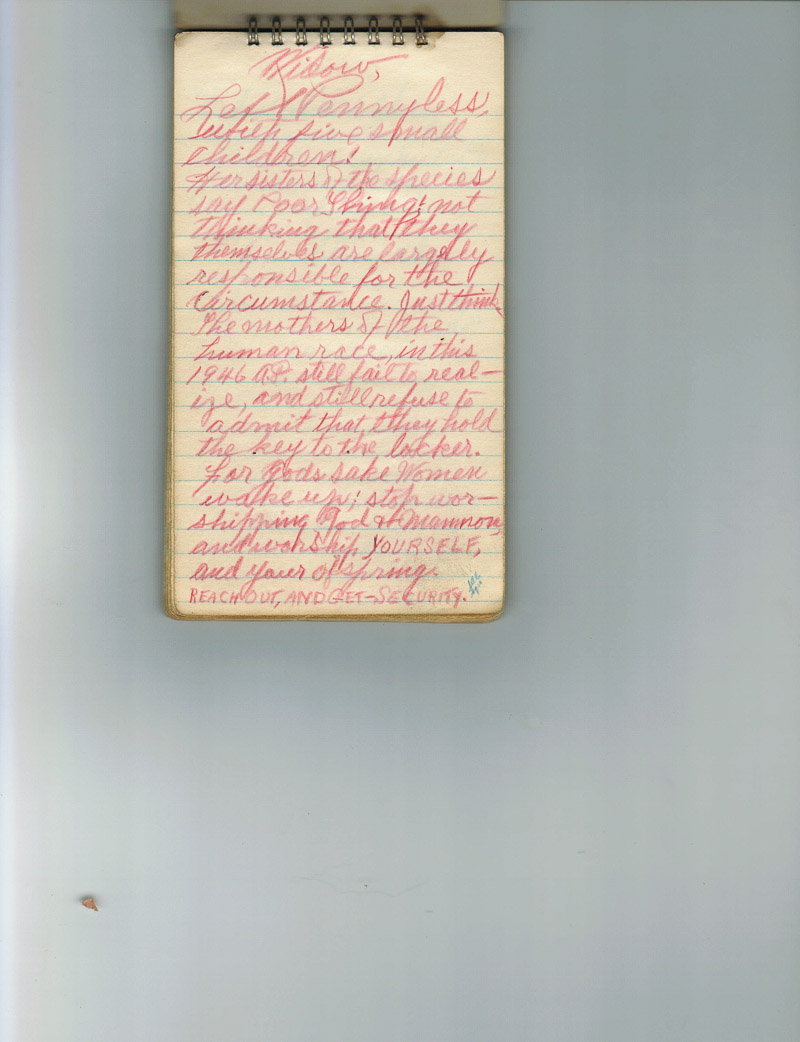 Widow,
Left Pennyless,
with five small
children!
Her sisters of the species
say Poor Thing! not
thinking that they
themselves are largely
responsible for the
circumstance. Just think
The mothers of the
human race, in this
1946 A.D. still fail to real-
ize, and still refuse to
admit that they hold
the key to the locker.
For Gods sake Women
wake up; stop wor-
shipping God & Mammon,
and worship YOURSELF,
and your ofspring.
REACH OUT, AND GET-SECURITY.